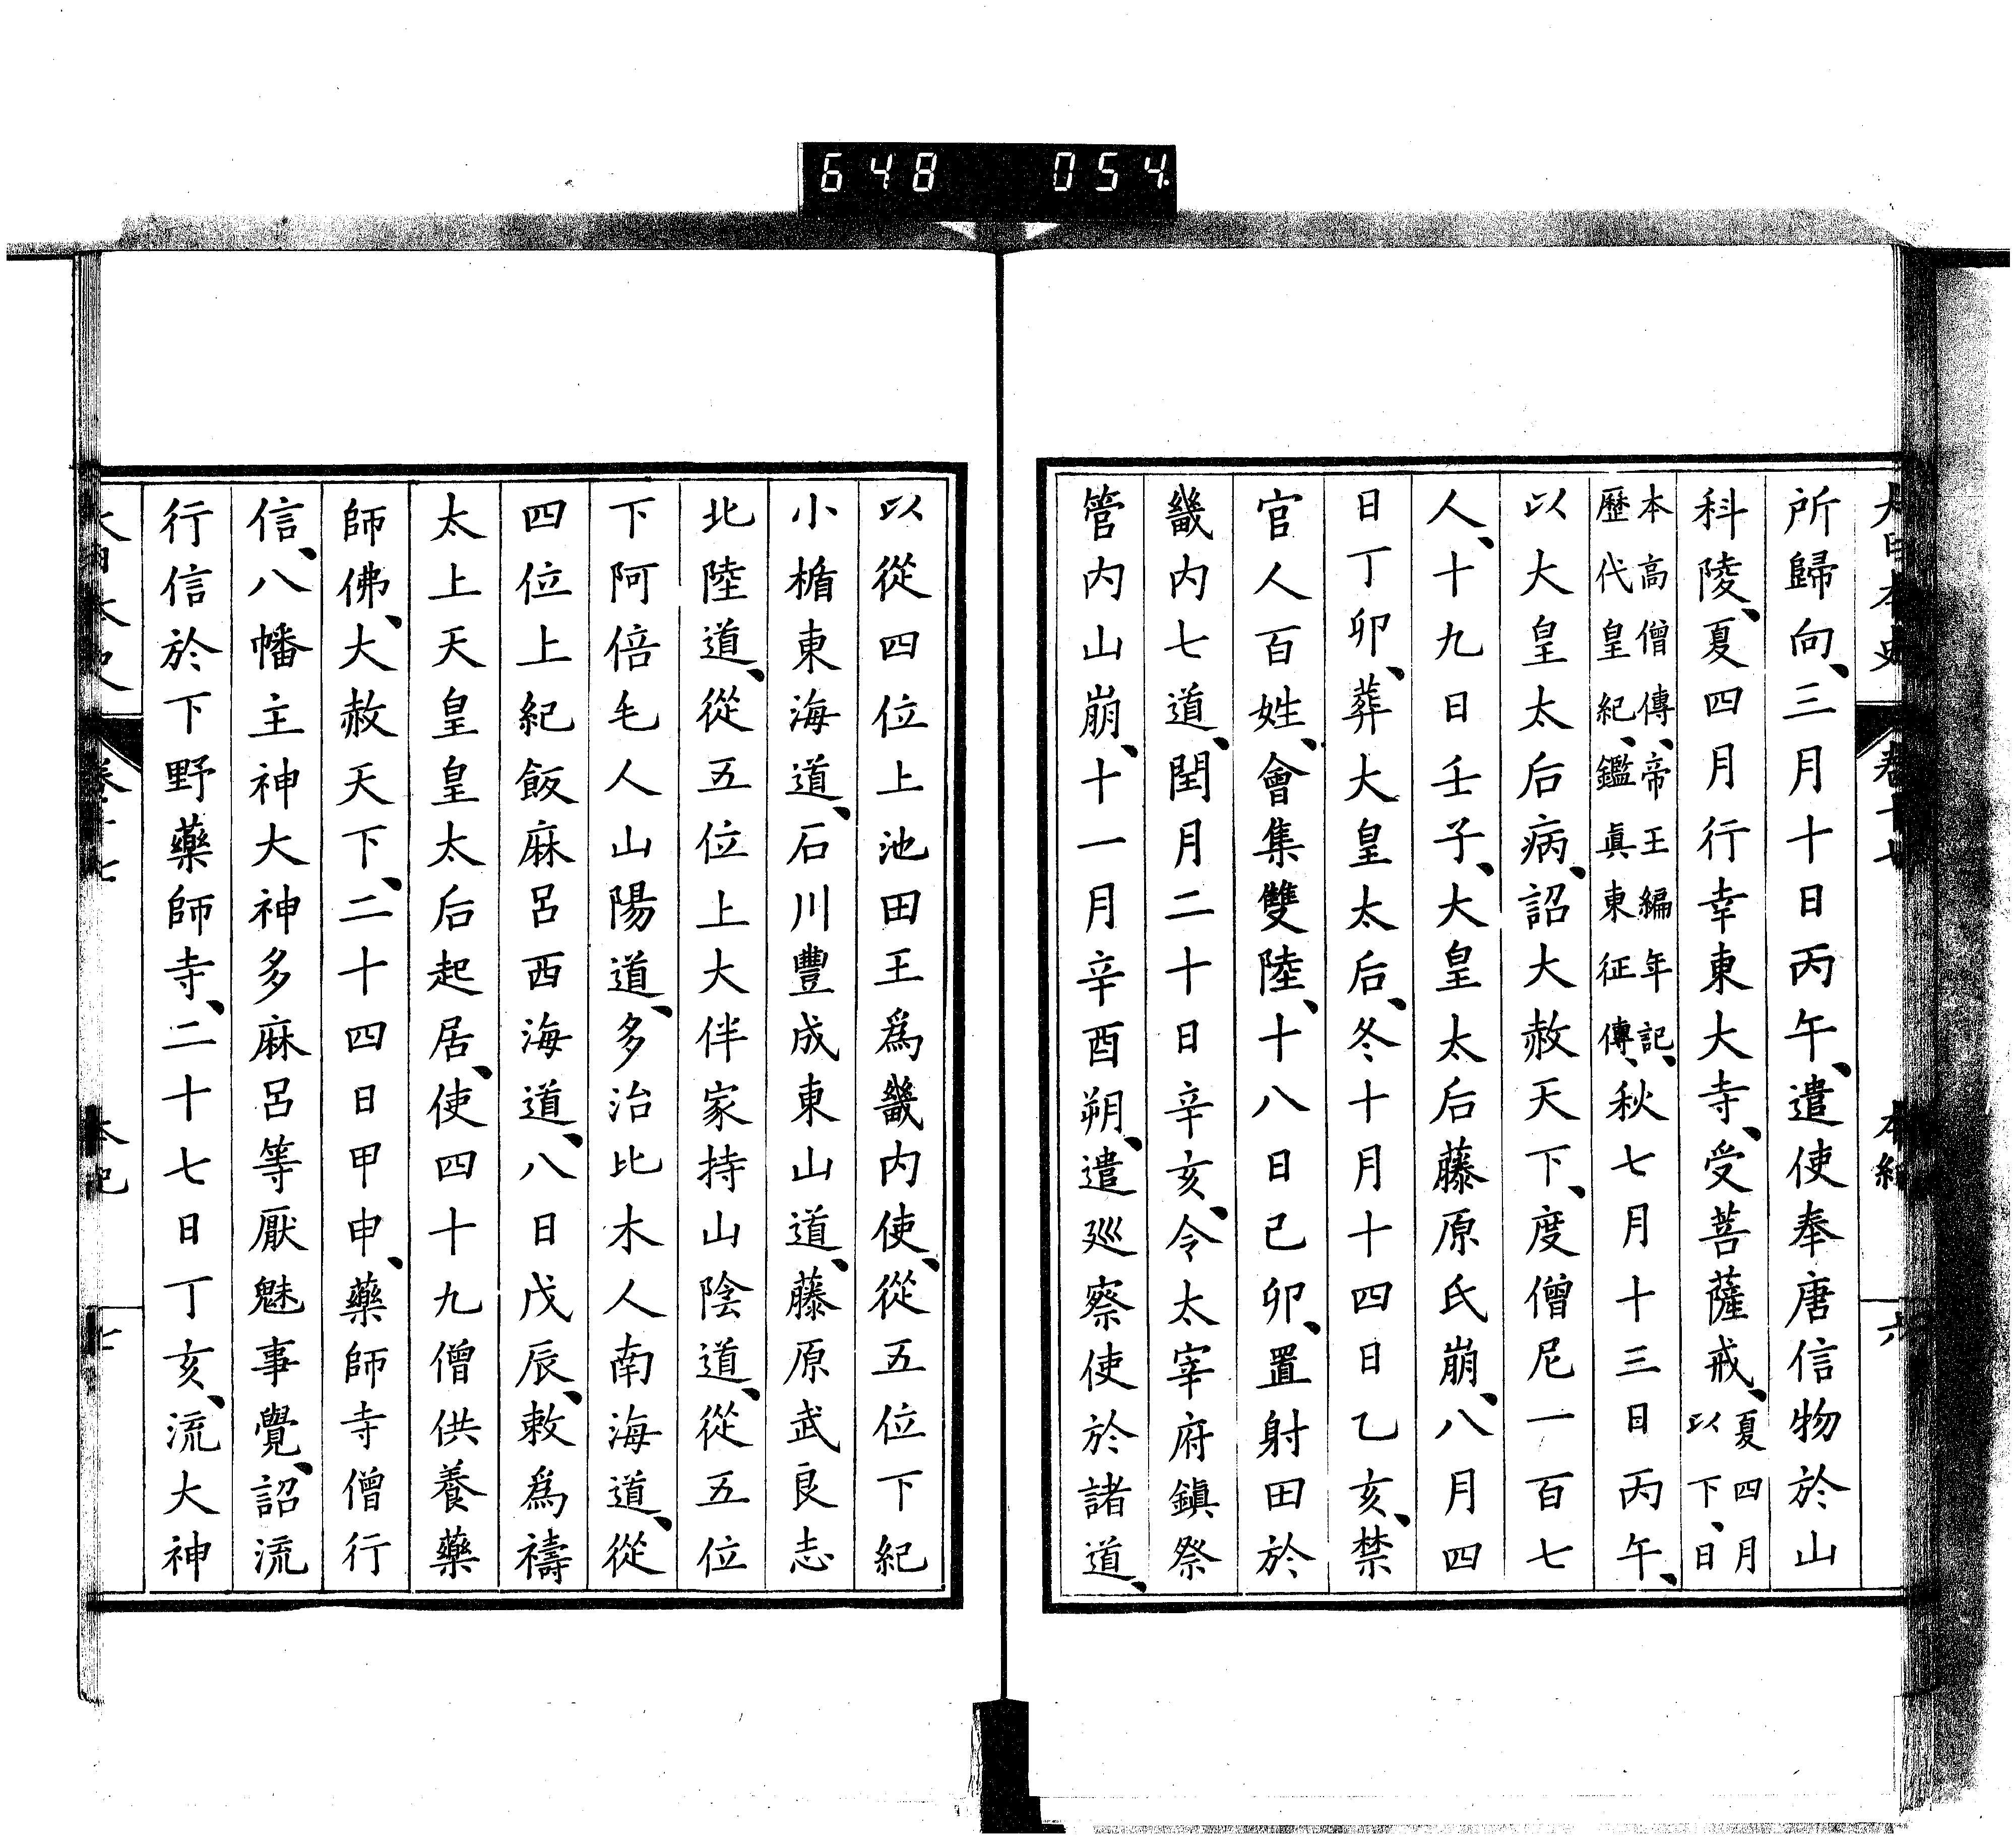 648 054
大日本史 卷十七 本紀 六
所歸向、三月十日丙午、遣使奉唐信物於山
科陵、夏四月行幸東大寺、受菩薩戒、夏四月以下、日
本高僧傳、帝王編年記、歷代皇紀、鑑眞東征傳、秋七月十三日丙午、
以大皇太后病、詔大赦天下、度僧尼一百七
人、十九日壬子、大皇太后藤原氏崩、八月四
日丁卯、葬大皇太后、冬十月十四日乙亥、禁
官人百姓、會集雙陸、十八日己卯、置射田於
畿內七道、閏月二十日辛亥、令太宰府鎭祭
管內山崩、十一月辛酉朔、遣廵察使於諸道、
以從四位上池田王爲畿內使、從五位下紀
小楯東海道、石川豐成東山道、藤原武良志
北陸道、從五位上大伴家持山陰道、從五位
下阿倍毛人山陽道、多治比木人南海道、從
四位上紀飯麻呂西海道、八日戊辰、敕爲禱
太上天皇皇太后起居、使四十九僧供養藥
師佛、大赦天下、二十四日甲申、藥師寺僧行
信、八幡主神大神多麻呂等厭魅事覺、詔流
行信於下野藥師寺、二十七日丁亥、流大神
大日本史 卷十七 本紀 七